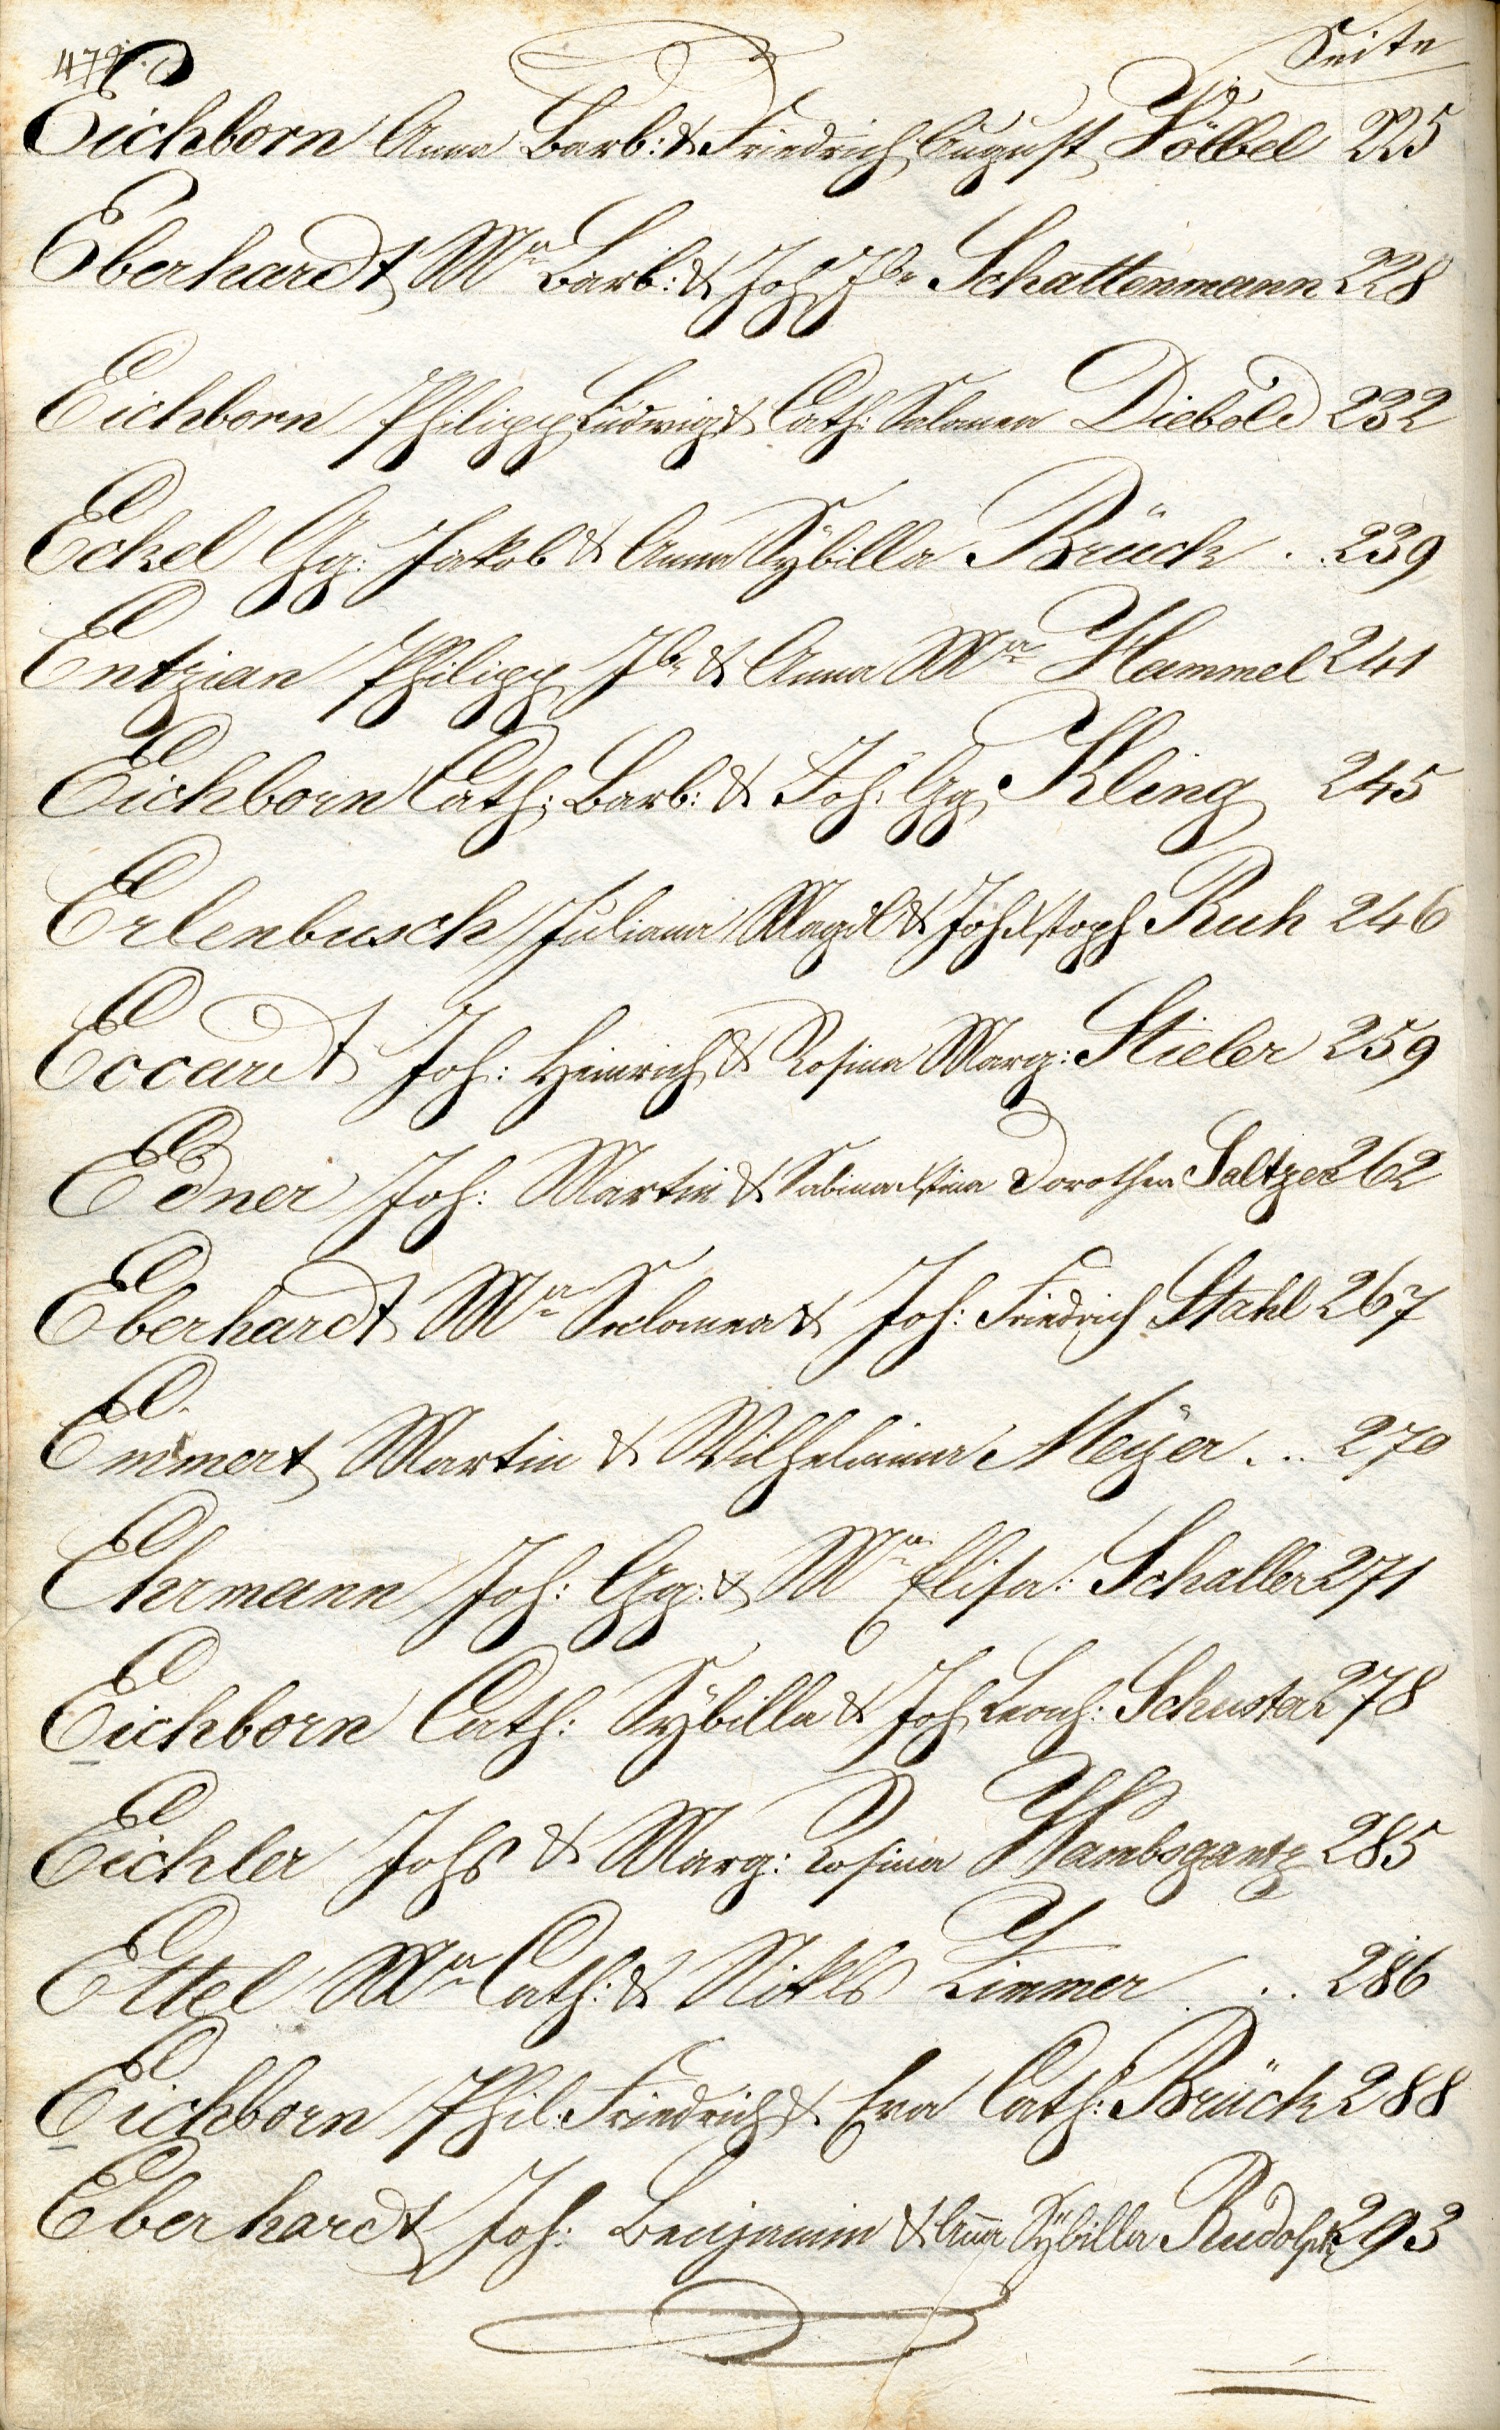 Seite
Eichborn Anna Barb: & Friedrich August Völbel 225
Eberhardt Ma Barb: & Joh Jb Schattenmann 228
Eichborn Philipp Ludwig & Cath: Salomea Diebold 232
Eckel Gg: Jakob & Anna Sÿbilla Brück . . 239
Entzian Philipp Jb & Anna Ma Hammel 241
Eichborn Cath: Barb: & Joh: Gg Kling 245
Erlenbusch Juliana Magdl & Joh Xstoph Ruh 246
Eccardt Joh: Heinrich & Rosina Marg: Stieler 259
Edner Joh: Martin & Sabina Xstina Dorothea Saltzer 262
Eberhardt Ma Salomea & Joh: Friedrich Stahl 267
Emmert Martin & Wilhelmina Meÿer . .. 270
Ehrmann Joh: Gg: & Ma Elisa: Schaller 271
Eichborn Cath: Sÿbilla & Joh Leonh: Schuster 278
Eichler Johs & Marg: Rosina Wambsgantz 285
Ettel Ma Cath: & Nikls Zimmer . . . 286
Eichborn Phil: Friedrich & Eva Cath: Brück 288
Eberhardt Joh: Benjamin & Anna Sÿbilla Rudolph 293